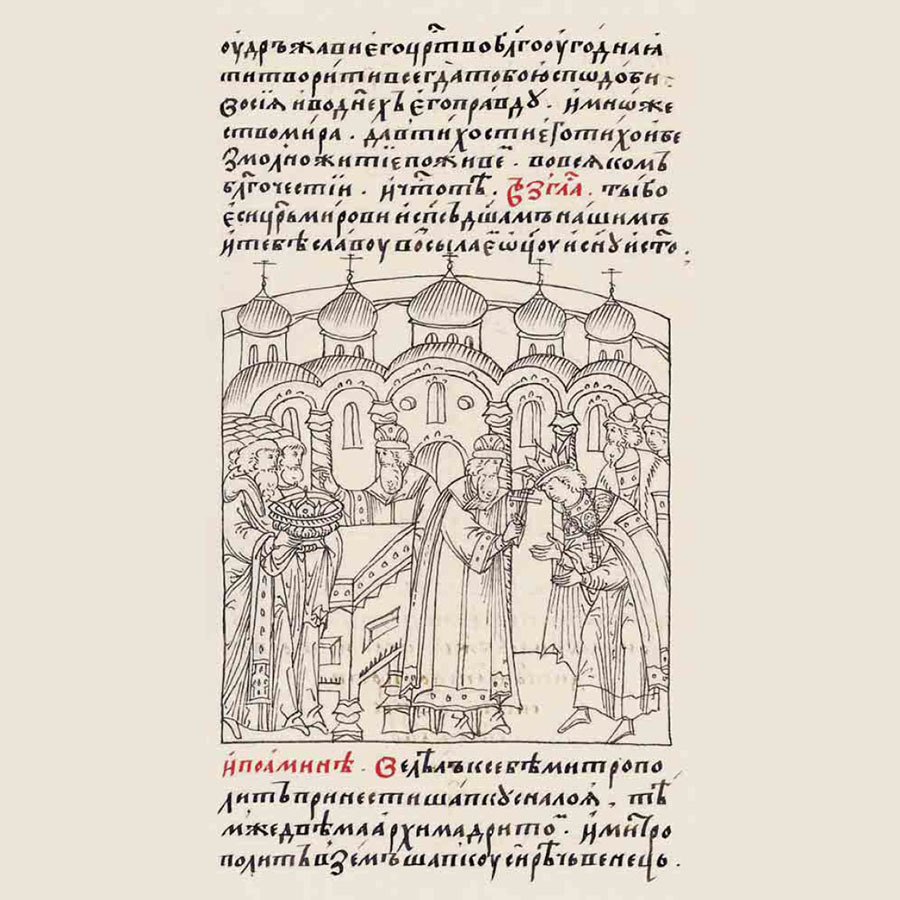 оудръжавиегоцр҃твоблг҃ооугоднаꙗ
титворитивсегдатобоюспѡдоби
Ѳосіѧиводнехъегоправду . имнѡже
ствомира . давтихостиеготихоибе
Змолножитіепоживе . вовсѧкомъ
блг҃очестіи . ичтотѣ . възгла . тыбо
есицр҃ьмировииспс҃ъдш҃амънашимъ
итебѣславоувосылаеѡц҃оуисн҃уист҃о
ипоаминѣ . велѣлъксебѣмитропо
литъпринестишапкуснлоѧ . тѣ
мжедвѣмаархимадрито . имитро
политъвземъшапкоусирѣчьвенець .